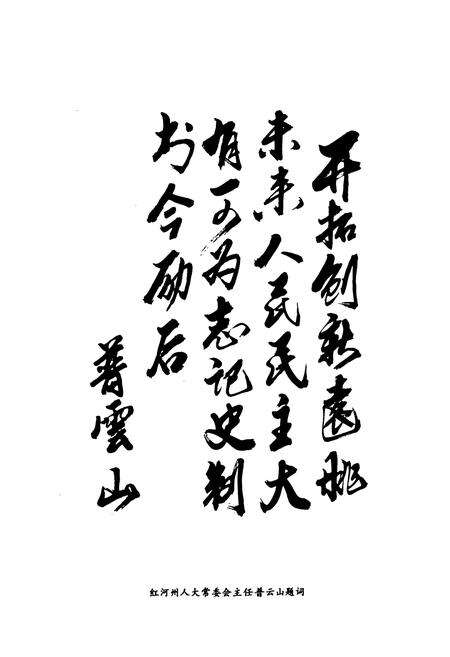 开拓创新遠眺
未来人民民主大
有可为志记史制
於今励后
普雲山
红河州人大常委会主任普云山题词